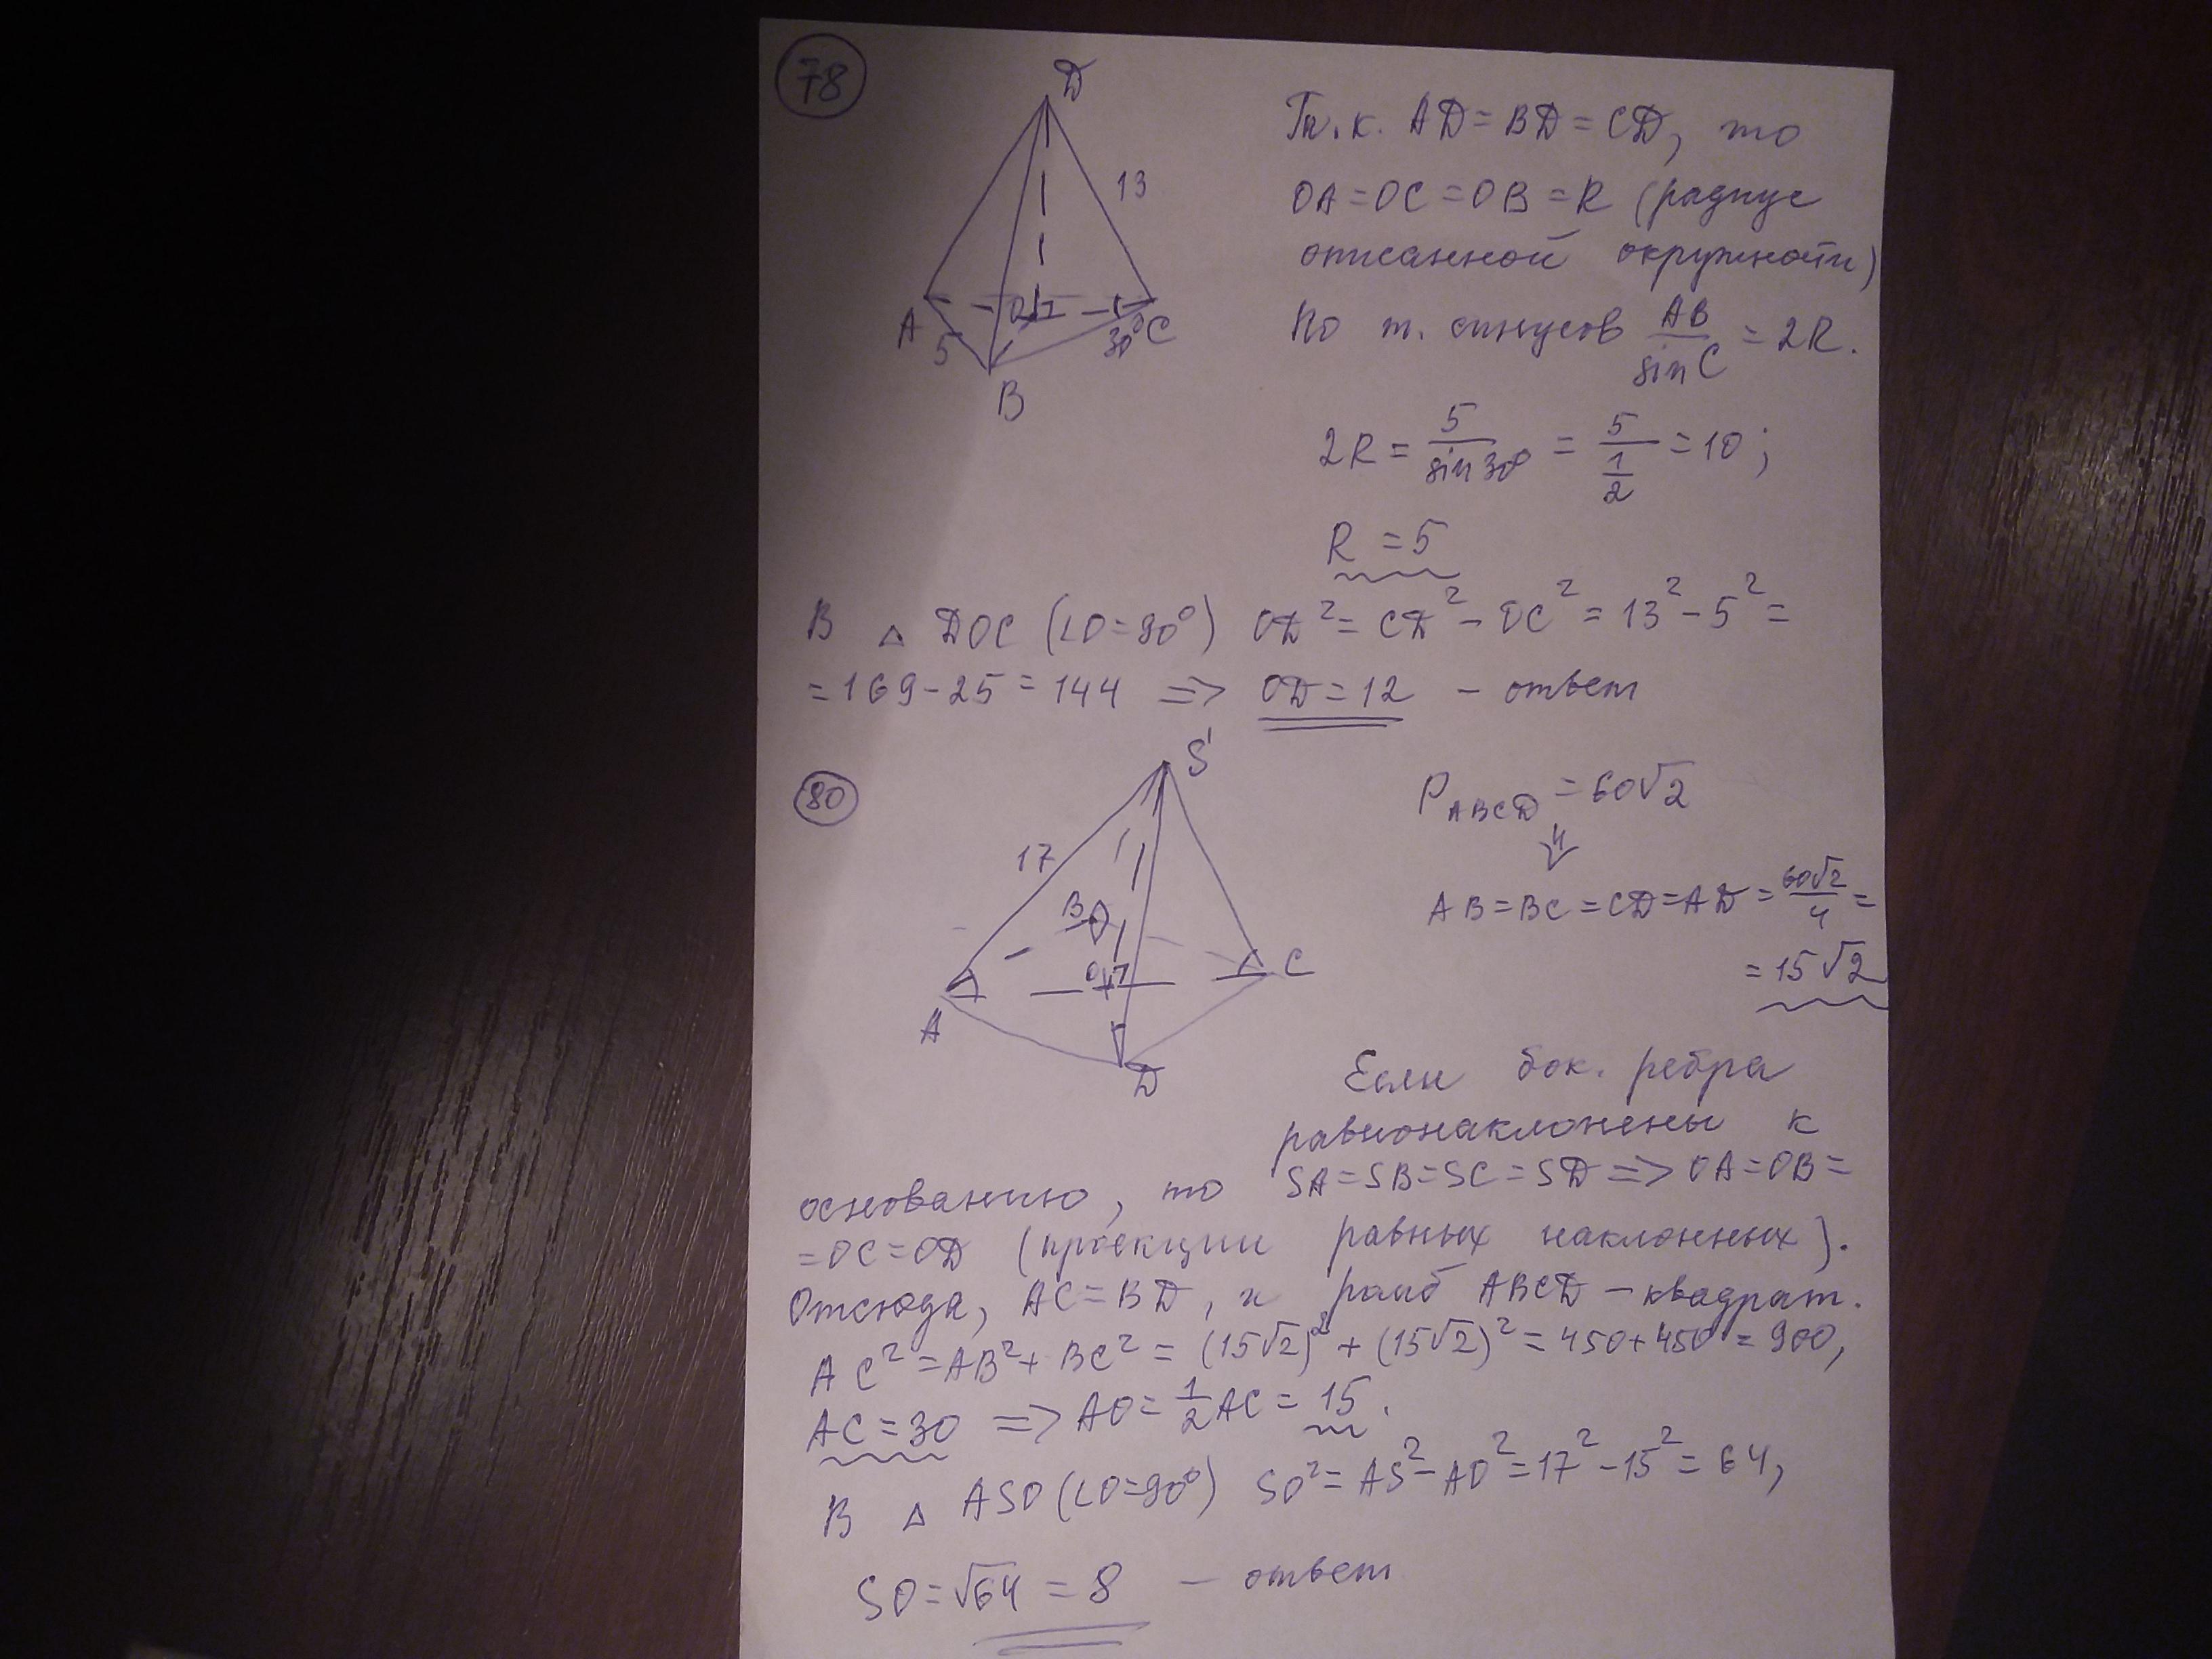 78
D
13
A
5
O
30°
C
B
Т.к. AD = BD = CD, то
OA = OC = OB = R (радиус
описанной окружности)
По т. синусов AB/sin C = 2R.
2R = 5/sin 30° = 5/(1/2) = 10;
R = 5
В △ DOC (∠O=90°) OD² = CD² - OC² = 13² - 5² =
= 169 - 25 = 144 => OD = 12 - ответ
80
S
17
B
O
C
A
D
P ABCD = 60√2
⇓
AB = BC = CD = AD = 60√2/4 =
= 15√2
Если бок. ребра
равнонаклонены к
основанию, то SA = SB = SC = SD => OA = OB =
= OC = OD (проекции равных наклонных).
Отсюда, AC = BD, и ромб ABCD - квадрат.
AC² = AB² + BC² = (15√2)² + (15√2)² = 450 + 450 = 900,
AC = 30 => AO = 1/2 AC = 15.
В △ ASO (∠O=90°) SO² = AS² - AO² = 17² - 15² = 64,
SO = √64 = 8 - ответ